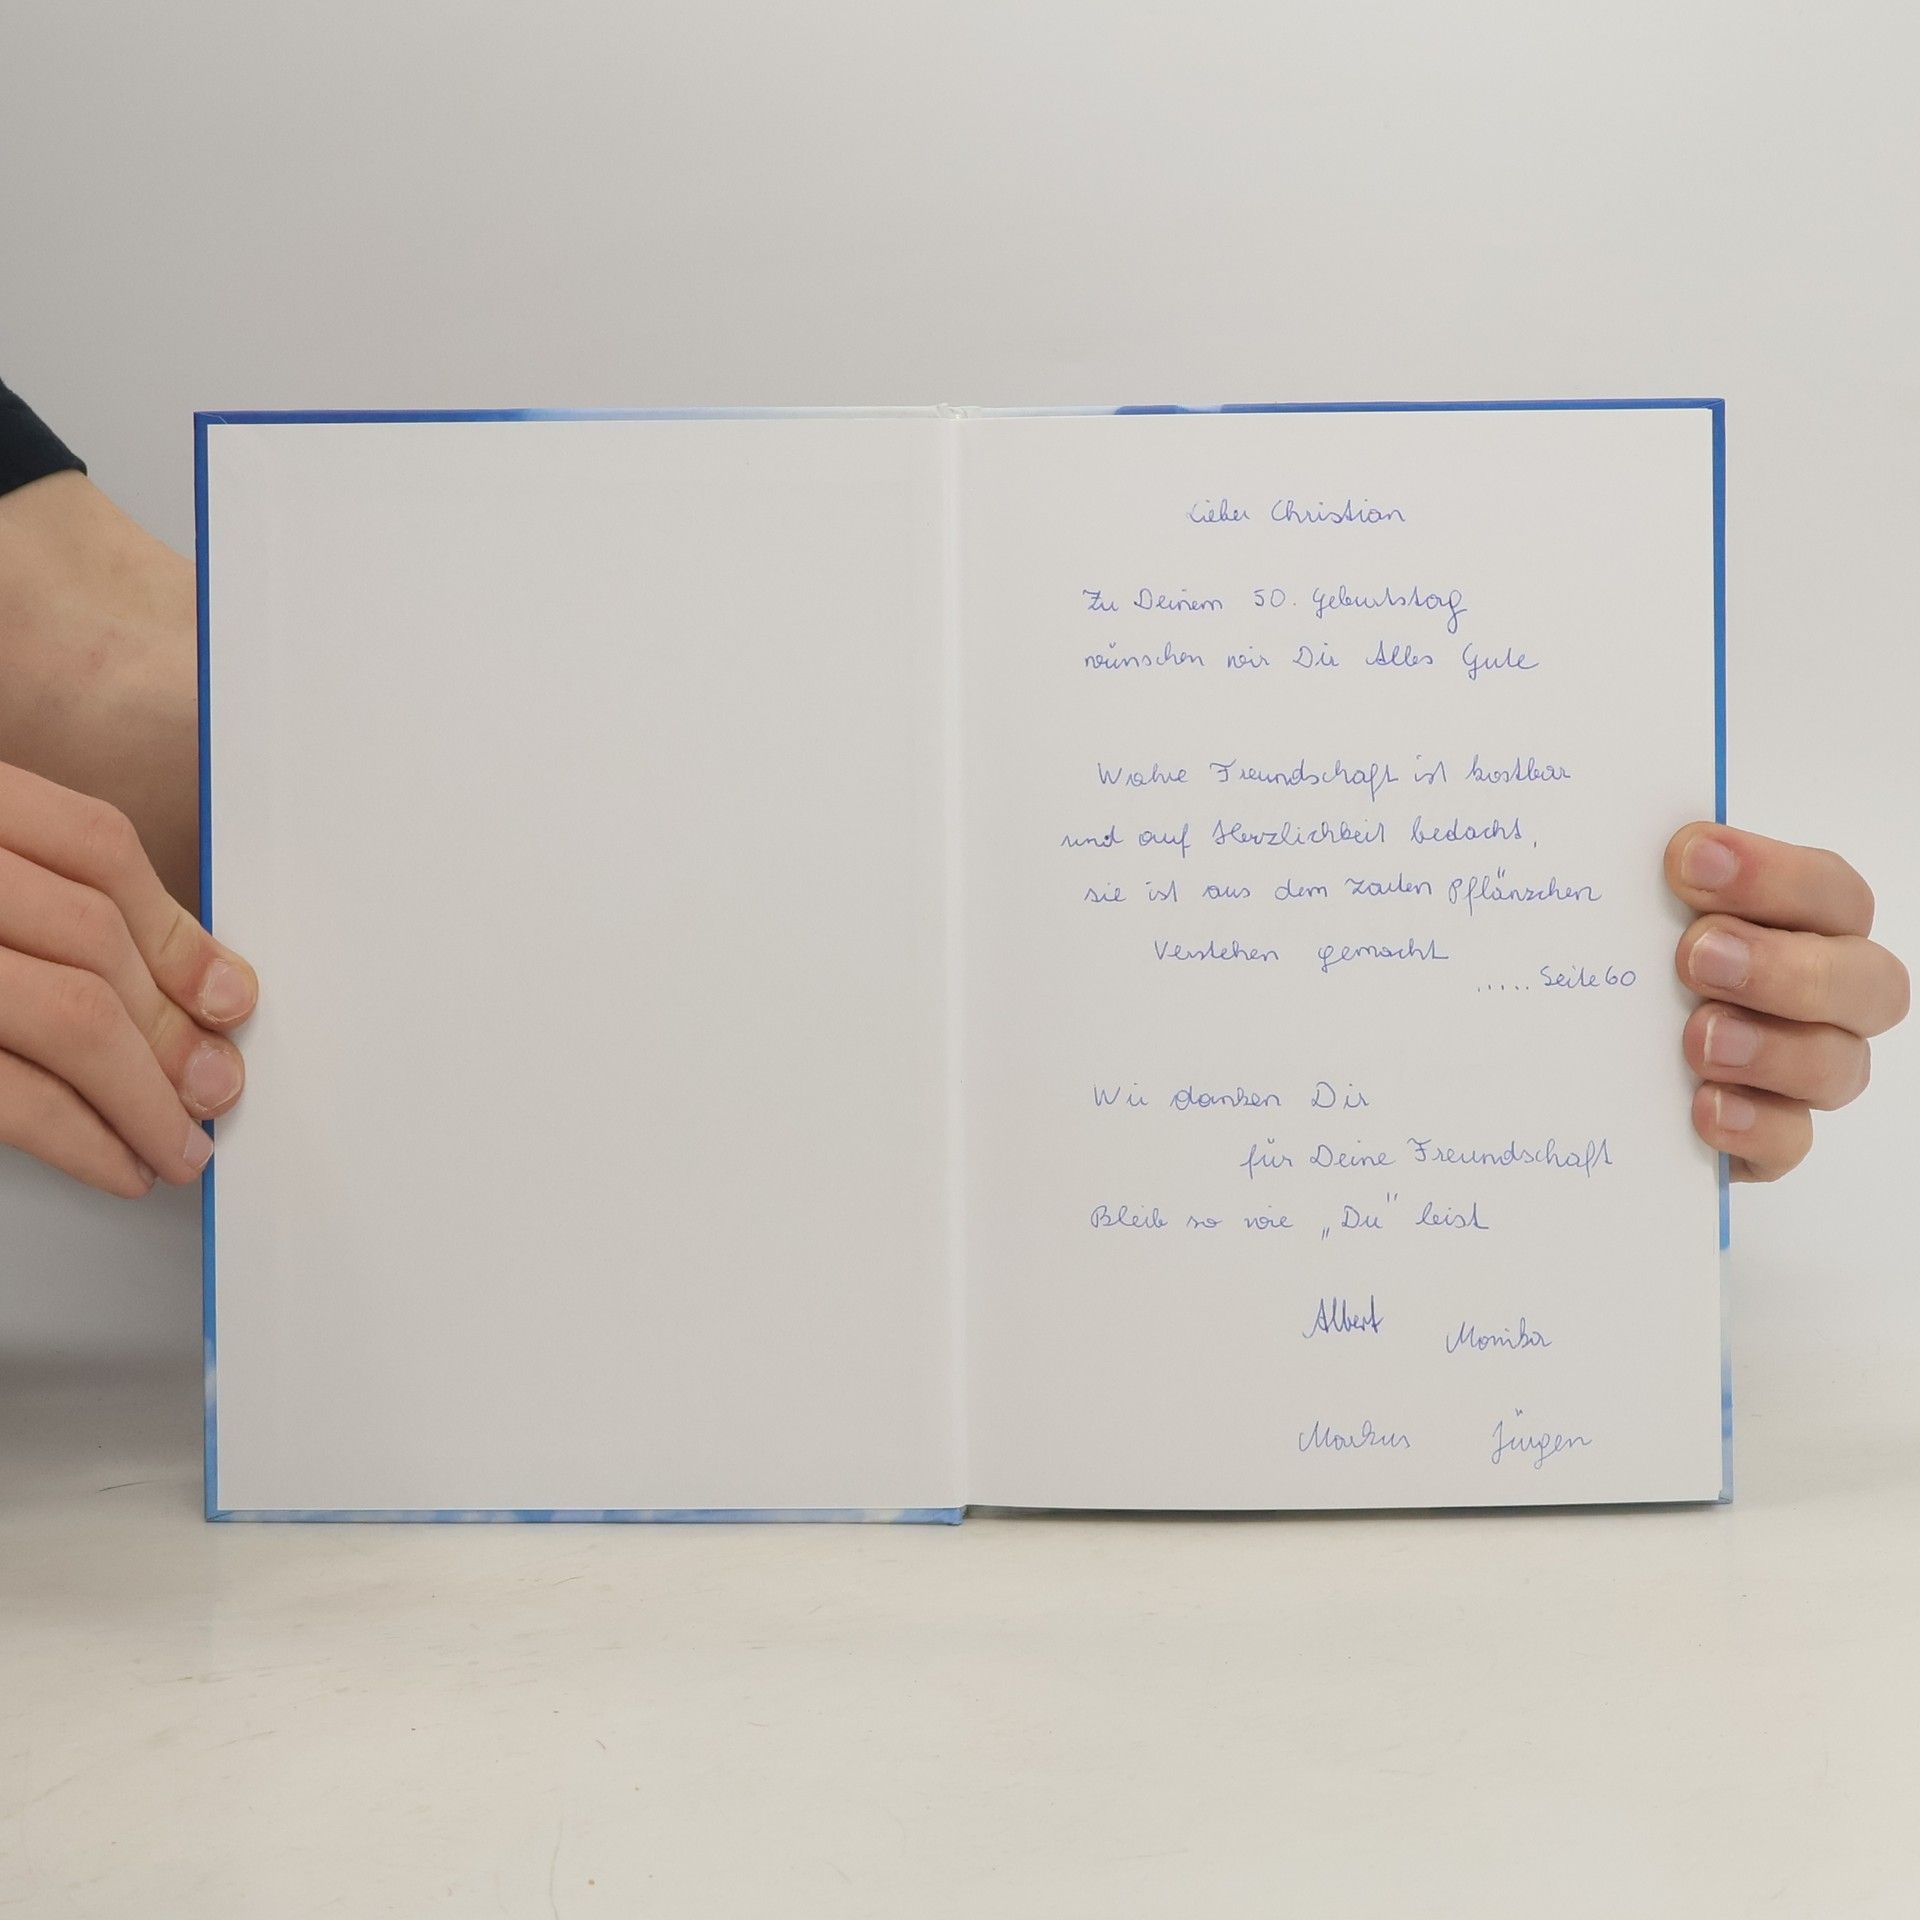 Lieber Christian
Zu Deinem 50. Geburtstag
wünschen wir Dir Alles Gute
Wahre Freundschaft ist kostbar
und auf Herzlichkeit bedacht,
sie ist aus dem zarten Pflänzchen
Verstehen gemacht
..... Seite 60
Wir danken Dir
für Deine Freundschaft
Bleib so wie „Du" bist
Albert Monika
Markus Jürgen